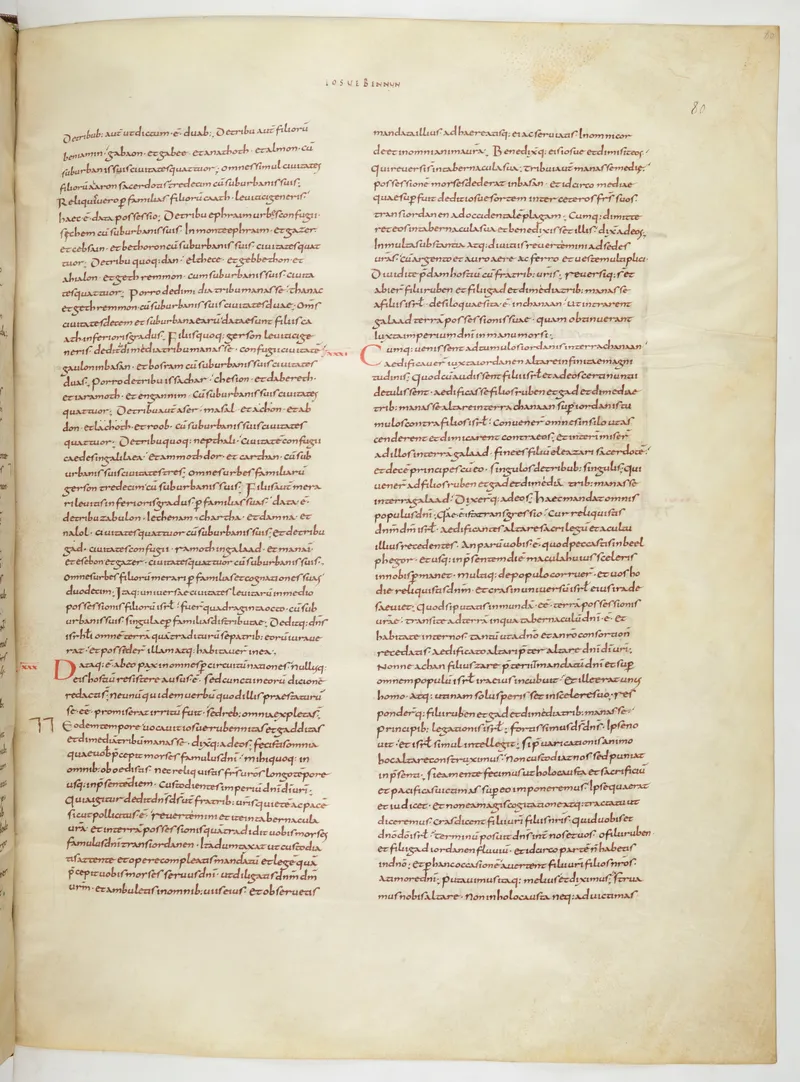 IOSUE BENNUN
80
De tribub: aut ut dictum ē duab:. De tribu aut filiorū
beniamin gabaon· et gabee· et anathoth· et almon· cū
suburbanis suis ciuitates quattuor; omnes simul ciuitates
filiorū aaron sacerdotis tredecim cū suburbanis suis;
Reliquis uero p familias filiorū caath leuitici generis·
haec ē data possessio; De tribu ephraim urbes confugii·
sichem cū suburbanis suis· In monte ephraim· et gazer·
et cebsain· et bethoron cū suburbanis suis· ciuitates quat
tuor; De tribu quoq: dan· elthece· et gebbethon· et
ahialon· et geth remmon· cum suburbanis suis· ciuita
tes quattuor; Porro de dimidia tribu manasse· thanac
et geth remmon cū suburbanis suis ciuitates duae; Oms
ciuitates decem et suburbana earū datae sunt filiis ca
ath inferioris gradus; Filiis quoq: gerson leuitici ge
neris· dedit de dimidia tribu manasse· confugii ciuitates·
gaulon in basan· et bosram cū suburbanis suis ciuitates
duas; Porro de tribu issachar· chesion· et dabereth·
et iaramoth· et engannim· cū suburbanis suis ciuitates
quattuor; De tribu aut aser· masal· et abdon· et ab
don et lachoth· et roob· cū suburbanis suis ciuitates
quattuor; De tribu quoq: nepthali· ciuitates confugii
caedes in galilaea· et ammoth dor· et carthan· cū sub
urbanis suis ciuitates tres; omnes urbes familiarū
gerson tredecim cū suburbanis suis; Filiis aut mera
ri leuitis inferioris gradus p familias suas· data ē·
de tribu zabulon· iechenam· chartha· et damna· et
nalol· ciuitates quattuor cū suburbanis suis; et de tribu
gad· ciuitates confugii· ramoth in galaad· et manaī·
et esebon et gazer· ciuitates quattuor cū suburbanis suis·
omnes urbes filiorū merari p familias et cognationes suas
duodecim; Itaq: uniuersae ciuitates leuitarū in medio
possessionis filiorū isrl· fuer quadraginta octo· cū sub
urbanis suis singulae p familias distributae; Deditq: dns
isrheli omnē terrā quā traditurū se patrib: eorū iuraue
rat· et posseder illam atq: habitauer in ea·
XXX Dataq: ē ab eo pax in omnes p circuitū nationes· nullusq:
eis hostiū resistere ausus ē· sed cuncti in eorū dicionē
redacti s; ne unū quidem uerbū quod illis praestaturū
se eē promiserat irritū fuit· sed reb: omnia expleta s;
Eodem tempore uocauit iosue rubenitas et gadditas
et dimidiā tribū manasse· dixitq: ad eos; fecistis omnia
quae uob p̄cepit moyses famulus dni· mihi quoq: in
omnib: oboedistis· nec reliquistis frs uros longo tempore
usq: in p̄sentē diem· custodientes imperiū dni di uri;
Quia igitur dedit dns ds ur fratrib: uris quietē ac pacē
sicut pollicitus ē· reuertimini et ite in tabernacula
urā· et in terrā possessionis quā tradidit uobis moyses
famulus dni trans iordanen· Ita dumtaxat ut custodia
tis attente· et opere compleatis mandatū et legē quā
p̄cepit uobis moyses seruus dni· ut diligatis dnm dm
urm· et ambuletis in omnib: uiis eius· et obseruetis
mandata illius adhaereatisq: ei ac seruiatis In omni cor
de et in omni anima urā; Benedixitq: eis iosue et dimisit eos;
qui reuersi s in tabernacula sua; tribui aut manasse mediae;
possessionē moyses dederat in basan· et idcirco mediae
quae supfuit dedit iosue sortem inter ceteros frs suos·
trans iordanen ad occidentalē plagam; Cumq: dimitte
ret eos in tabernacula sua et benedixisset illis· dixit ad eos;
In multa substantia atq: diuitiis reuertimini ad sedes
urās· cū argento et auro aere ac ferro et ueste multiplici·
Diuidite p̄dam hostiū cū fratrib: uris; reuersiq: s et
abier filii ruben et filii gad et dimidia trib: manasse·
a filiis isrl· de silo quae sita ē in chanaan· ut intrarent
galaad terrā possessionis suae· quam obtinuerant
iuxta imperium dni in manu moysi·
XXXI Cumq: uenissent ad tumulos iordanis in terra chanaan
aedificauer iuxta iordanen altare infinitae magni
tudinis; Quod cū audissent filii isrl· et ad eos certi nuntii
detulissent· aedificasse filios ruben et gad et dimidiae
trib: manasse altare in terra chanaan sup iordanis tu
mulos contra filios isrl· Conuener omnes in silo ut as
cenderent et dimicarent contra eos; et interim miser
ad illos in terrā galaad· finees filiū eleazari sacerdotē·
et decē principes cū eo· singulos de tribub: singulis; qui
uener ad filios ruben et gad et dimidiā trib: manasse·
in terrā galaad· Dixerq: ad eos; Haec mandat omnis
populus dni; Quae ē ista transgressio; Cur reliquistis
dnm dm isrl· aedificantes altare sacrilegū et a cultu
illius recedentes· An parū uobis ē· quod peccastis in beel
phegor· et usq: in p̄sentem diē macula huius sceleris
in nobis pmanet· multiq: de populo corruer· et uos ho
die reliquistis dnm· et cras in uniuersū isrl eius ira de
saeuiet; Quod si putatis inmundā eē terrā possessionis
urae· transite ad terrā in qua tabernaculū dni ē· et
habitate inter nos· tantū ut a dno et a nro consortio n
recedatis· aedificato altari pter altare dni di uri;
Nonne achan filius zare· pterit mandatū dni et sup
omnem populū isrl ira eius incubuit· et ille erat unus
homo· atq: utinam solus perisset in scelere suo; res
ponderq: filii ruben et gad et dimidia trib: manasse·
principib: legationis isrl·; fortissimus ds dns· Ipse no
uit· et isrl simul intelleget; si puaricationis animo
hoc altare construximus· Non custodiat nos sed puniat
in p̄senti; si ea mente fecimus ut holocausta et sacrificiū
et pacificas uictimas sup eo imponeremus· Ipse quaerat
et iudicet· et non ea magis cogitatione atq: tractatu ut
diceremus· cras dicent filii uri filiis nris· quid uobis et
dno do isrl·; Terminū posuit dns int nos et uos· o filii ruben
et filii gad iordanen fluuiū· et idcirco partē n habetis
in dno; et p hanc occasionē auertent filii uri filios nros·
a timore dni; putauimus itaq: melius et diximus; strua
mus nobis altare· non in holocausta neq: ad uictimas